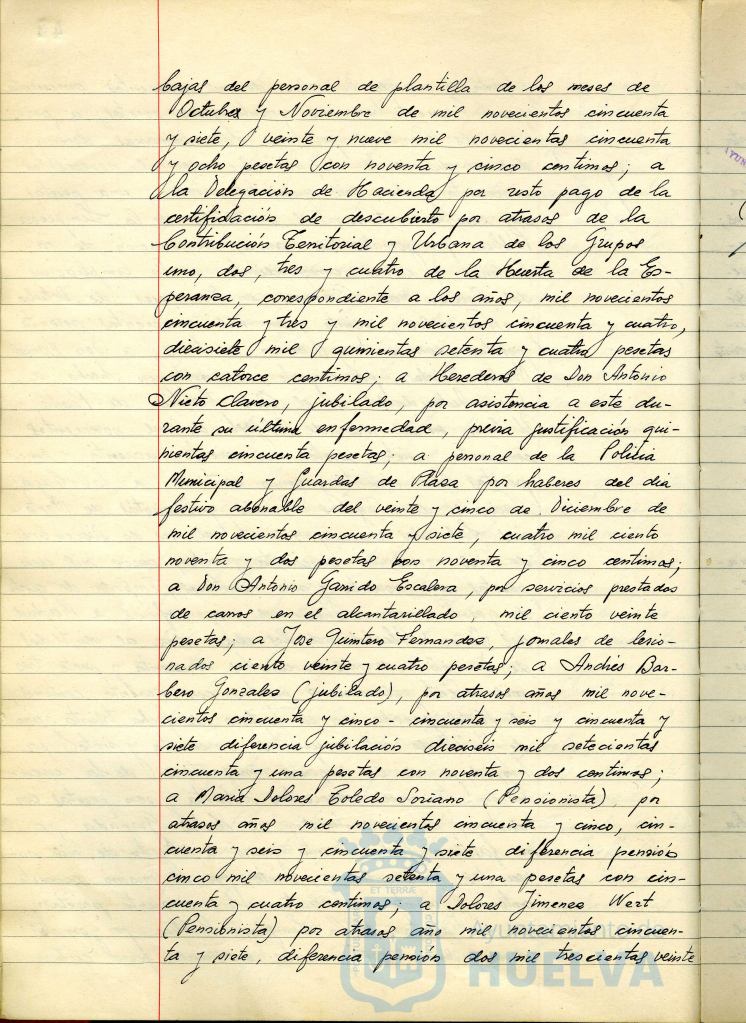 bajas del personal de plantilla de los meses de
Octubre y Noviembre de mil novecientos cincuenta
y siete, veinte y nueve mil novecientas cincuenta
y ocho pesetas con noventa y cinco centimos; a
la Delegación de Hacienda por resto pago de la
certificación de descubierto por atrasos de la
Contribución Territorial y Urbana de los Grupos
uno, dos, tres y cuatro de la Huerta de la Es-
peranza, correspondiente a los años, mil novecientos
cincuenta y tres y mil novecientos cincuenta y cuatro,
diecisiete mil quinientas setenta y cuatro pesetas
con catorce centimos; a Herederos de Don Antonio
Nieto Clavero, jubilado, por asistencia a este du-
rante su última enfermedad, previa justificación qui-
nientas cincuenta pesetas; a personal de la Policia
Municipal y Guardas de Plaza por haberes del dia
festivo abonable del veinte y cinco de Diciembre de
mil novecientos cincuenta y siete, cuatro mil ciento
noventa y dos pesetas con noventa y cinco centimos;
a Don Antonio Garrido Escalera, por servicios prestados
de carros en el alcantarillado, mil ciento veinte
pesetas; a Jose Quintero Fernandez, jornales de lesio-
nados ciento veinte y cuatro pesetas; a Andrés Bar-
bero Gonzalez (jubilado), por atrasos años mil nove-
cientos cincuenta y cinco - cincuenta y seis y cincuenta y
siete diferencia jubilación dieciseis mil setecientas
cincuenta y una pesetas con noventa y dos centimos;
a Maria Dolores Toledo Soriano (Pensionista) por
atrasos años mil novecientos cincuenta y cinco, cin-
cuenta y seis y cincuenta y siete diferencia pensión
cinco mil novecientas setenta y una pesetas con cin-
cuenta y cuatro centimos; a Dolores Jimenez Wert
(Pensionista) por atrasos año mil novecientos cincuen-
ta y siete, diferencia pensión dos mil trescientas veinte
HUELVA